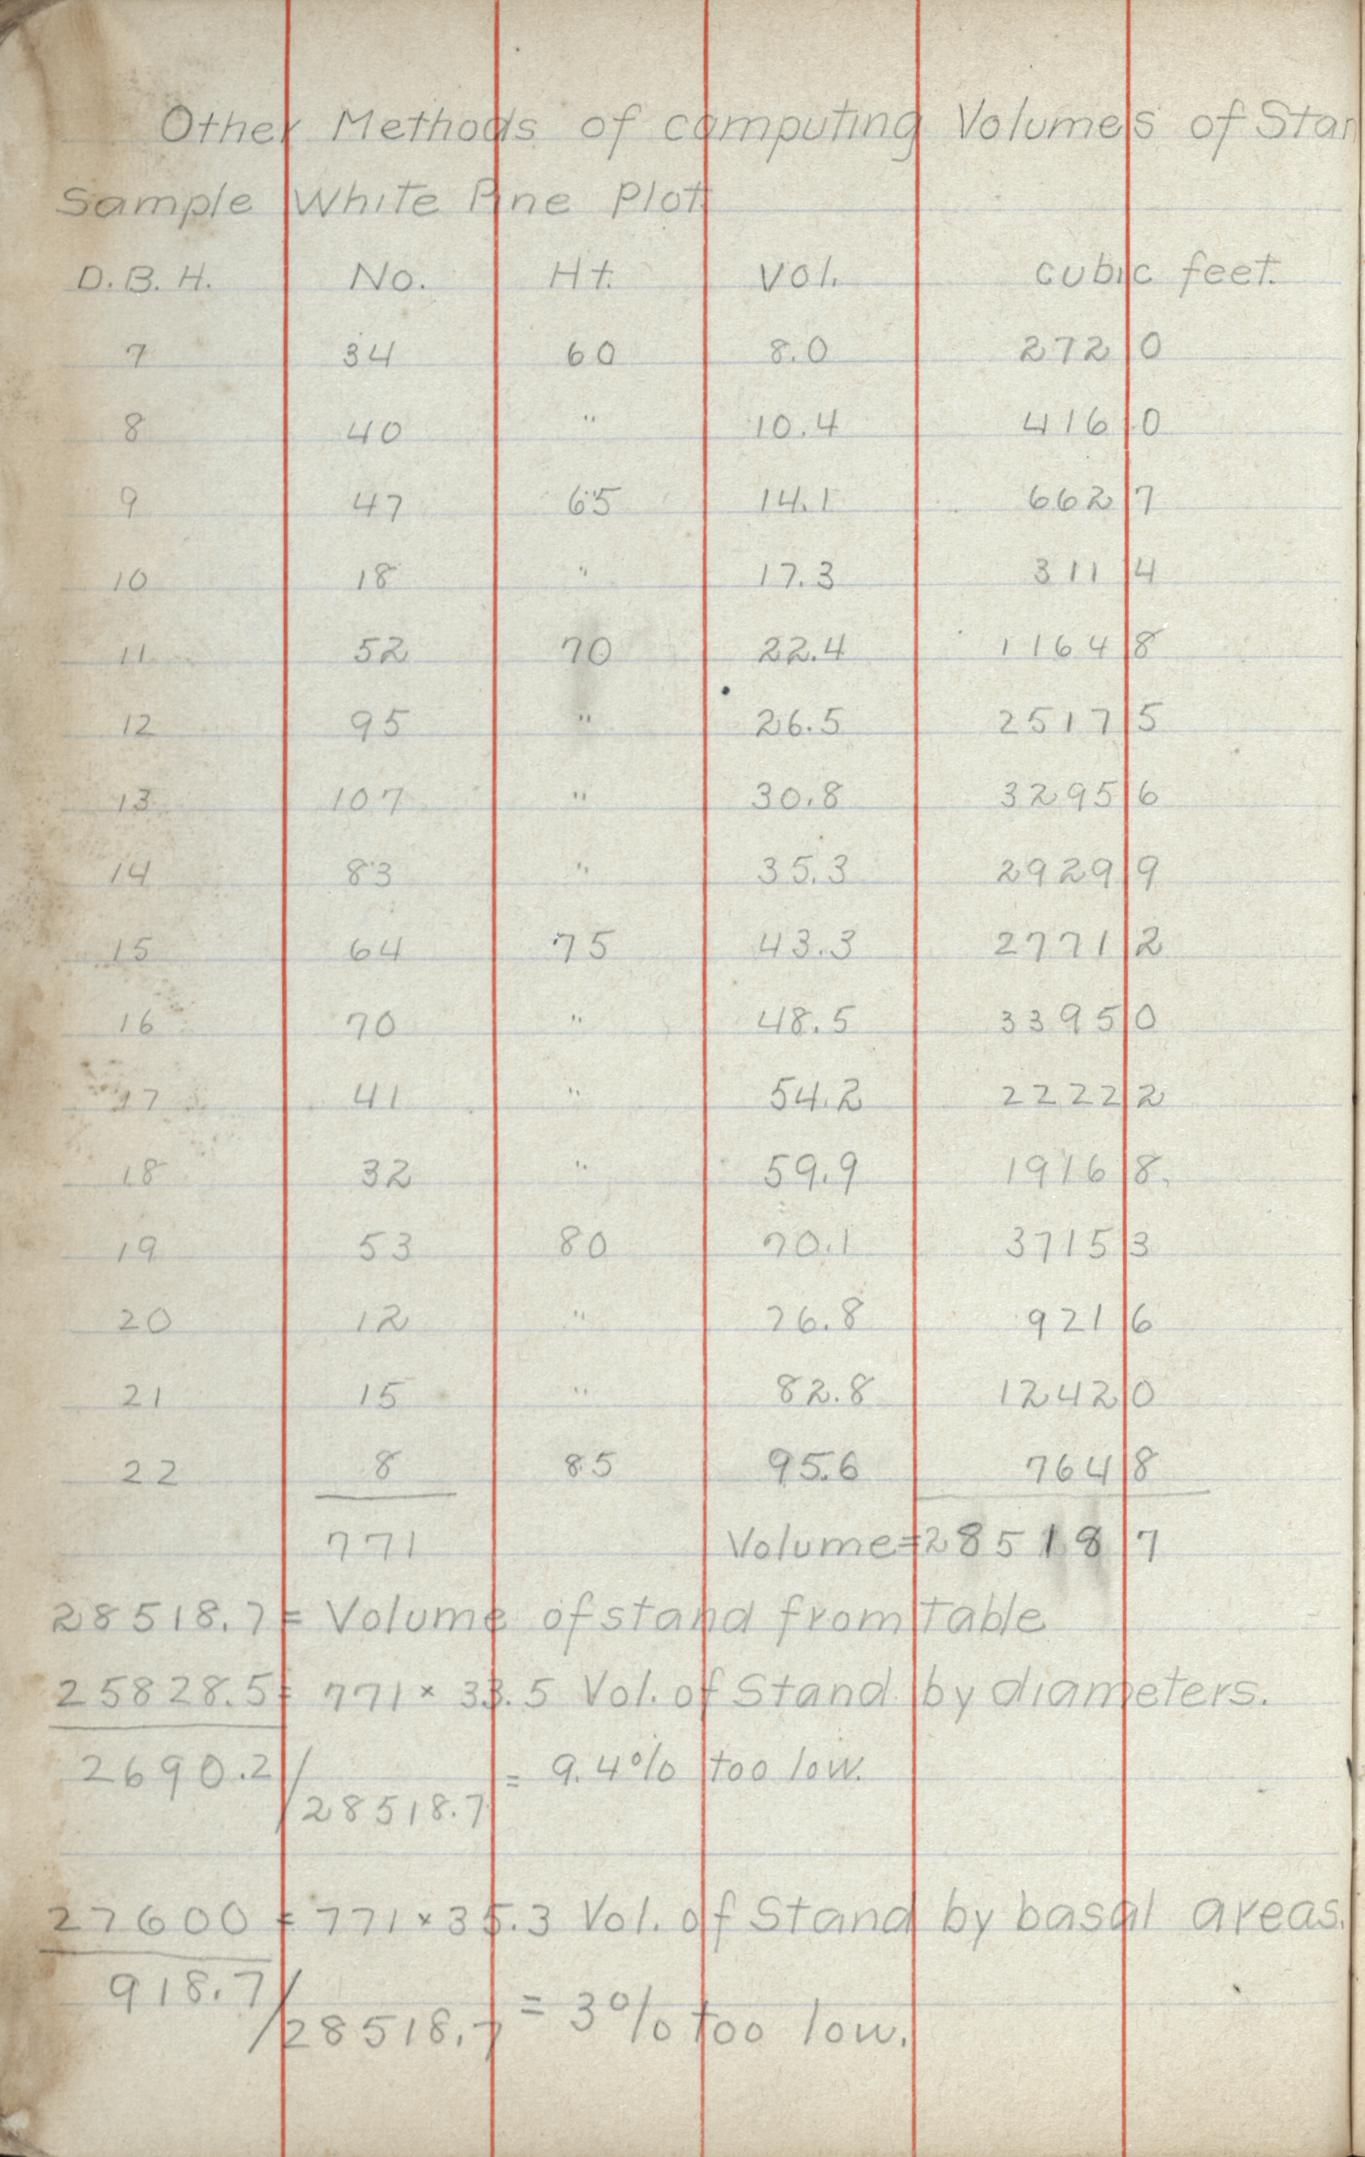 Other Methods of computing Volumes of Stan
Sample White Pine Plot
D.B.H. No. Ht. Vol. cubic feet.
7 34 60 8.0 272 0
8 40 " 10.4 416 0
9 47 65 14.1 662 7
10 18 " 17.3 311 4
11 52 70 22.4 1164 8
12 95 " 26.5 2517 5
13 107 " 30.8 3295 6
14 83 " 35.3 2929 9
15 64 75 43.3 2771 2
16 70 " 48.5 3395 0
17 41 " 54.2 2222 2
18 32 " 59.9 1916 8.
19 53 80 70.1 3715 3
20 12 " 76.8 921 6
21 15 " 82.8 1242 0
22 8 85 95.6 764 8
771 Volume=28518 7
28518.7 = Volume of stand from Table
25828.5 = 771 × 33.5 Vol. of Stand by diameters.
2690.2/28518.7 = 9.4% too low.
27600 = 771 × 35.3 Vol. of Stand by basal areas.
918.7/28518.7 = 3% too low.